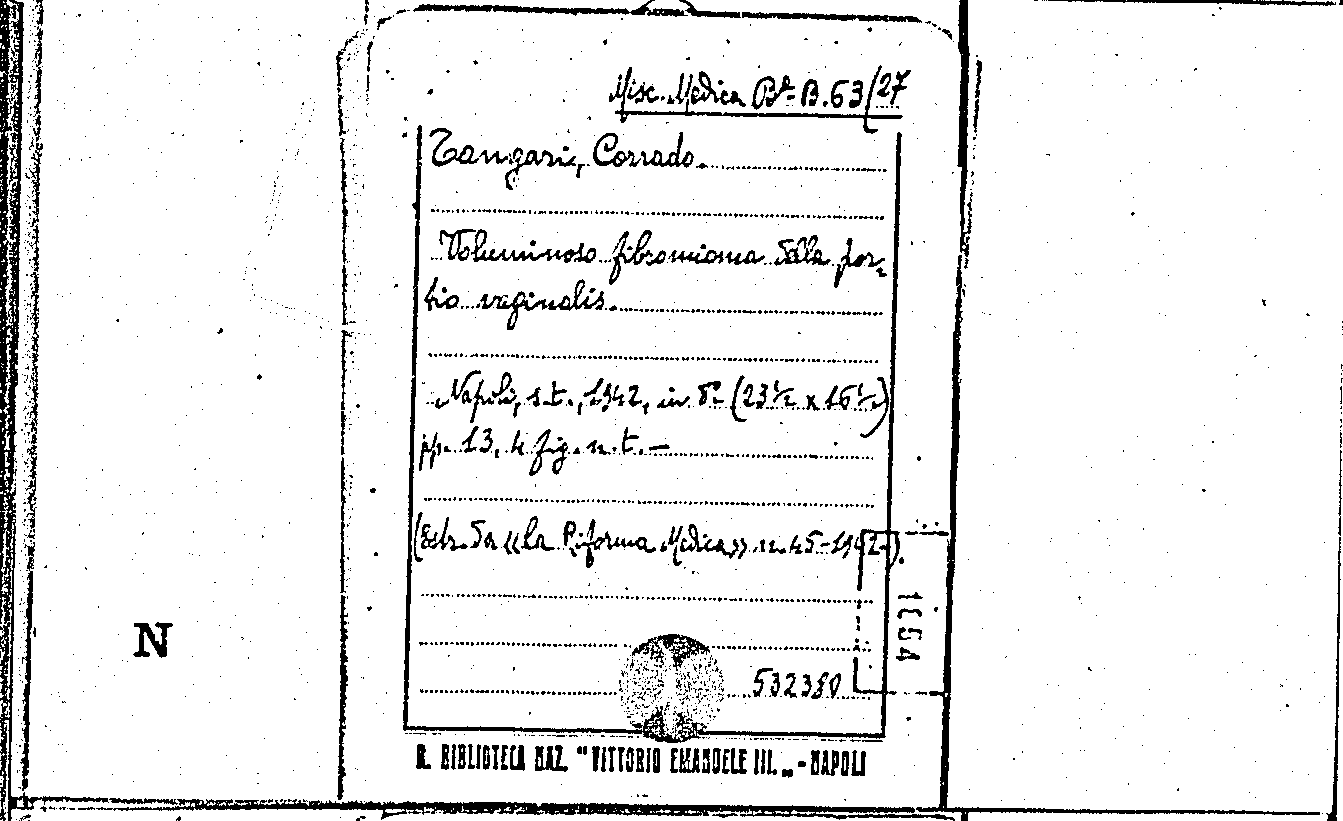 Misc. Medica Bª. B. 63/27
Tangari, Corrado.
Voluminoso fibromioma della por-
tio vaginalis.
Napoli, s.t., 1942, in 8º (23½ x 16½)
pp. 13, 4 fig. n. t. —
(Estr. da «la Riforma Medica» n. 45-1942-).
1664
N
532380
R. BIBLIOTECA NAZ. "VITTORIO EMANUELE III." - NAPOLI